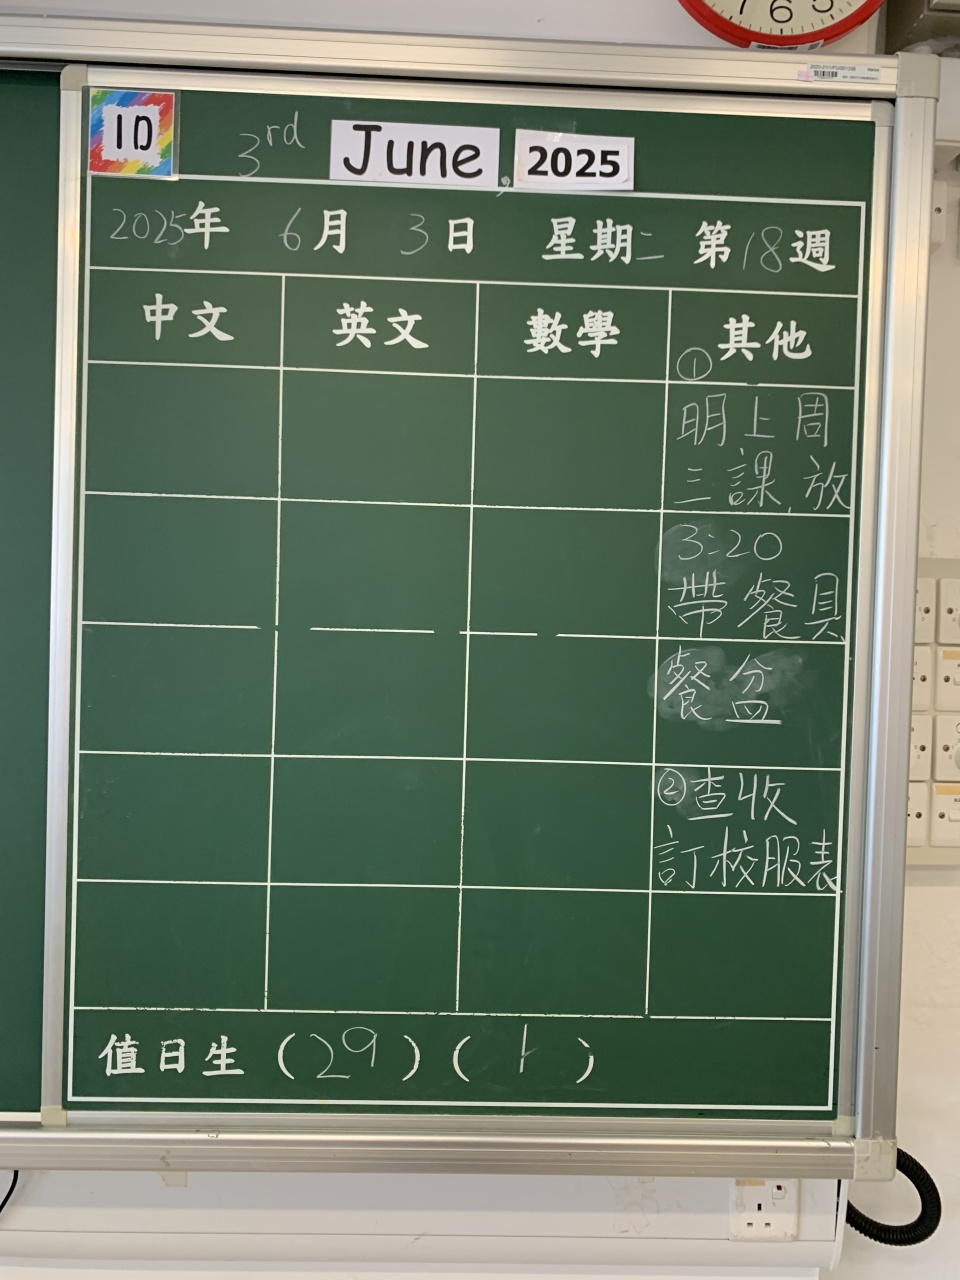 1D
3rd June, 2025
2025年 6月 3日 星期二 第18週
中文 英文 數學 其他
①
明上周
三課,放
3:20
帶餐具
餐盆
②查收
訂校服表
值日生 (29) (1)